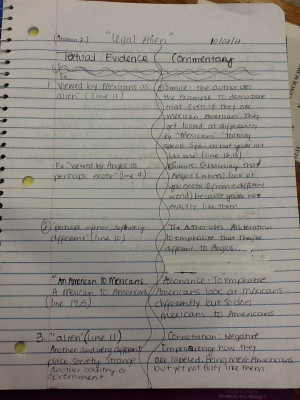 (Version 2) "Legal Alien" 10/02/12
Textual Evidence Commentary
Ex
1. Viewed by Mexicans as
alien" (line 11)
Simile: The author uses
the example to demonstrate
that Even if they are
Mexican Americans They
get looked at differently
by "Mexicans".
speak Spanish but you're not
like
Ex "viewed by Anglos as
perhaps exotic" (line 9)
Simile: Explaining that
Anglos (whites) look at
you exotic (from a different
world) because you're not
exactly like them
2 "perhaps inferior, definitely
different" (line 10)
The Author uses Alliteration
to emphasize that they're
different to Anglos.
"An American to Mexicans
A Mexican to Americans"
line 14,15
Assonance: To Emphasize
Americans look at Mexicans
differently but so does
Mexicans to Americans
3. "alien" (line 11)
Another and very different
place, Society. Strange
Another country or
government
Connotation: Negative
how they
are labeled. Being Mexi-Americans
but yet not fully like them